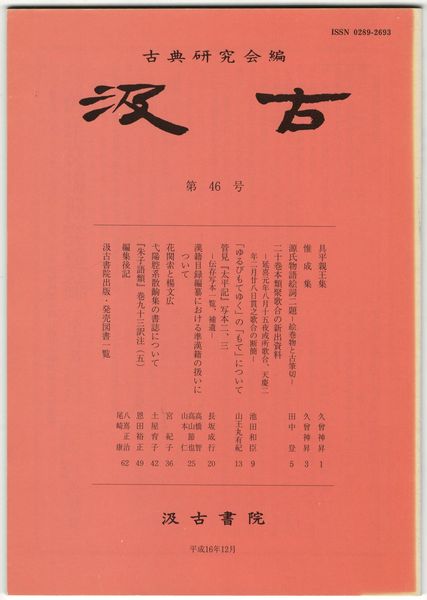 ISSN 0289-2693
古典研究会編
汲古
第 46 号
具平親王集 久曾神昇 1
惟成集 久曾神昇 3
源氏物語絵詞二題 ―絵巻物と古筆切― 田中 登 5
二十巻本類聚歌合の新出資料
―延喜元年八月十五夜或所歌合、天慶二
年二月廿八日貫之歌合の断簡― 池田和臣 9
「ゆるびもてゆく」の「もて」について 山王丸有紀 13
管見『太平記』写本二、三
―伝存写本一覧、補遺― 長坂成行 20
漢籍目録編纂における準漢籍の扱いに
ついて 高橋 智 高山節也 山本 仁 25
花関索と楊文広 宮 紀子 36
弋陽腔系散齣集の書誌について 土屋育子 42
『朱子語類』巻九十三訳注(五) 恩田裕正 49
編集後記 八嶌正治 尾崎 康 62
汲古書院出版・発売図書一覧
汲古書院
平成16年12月